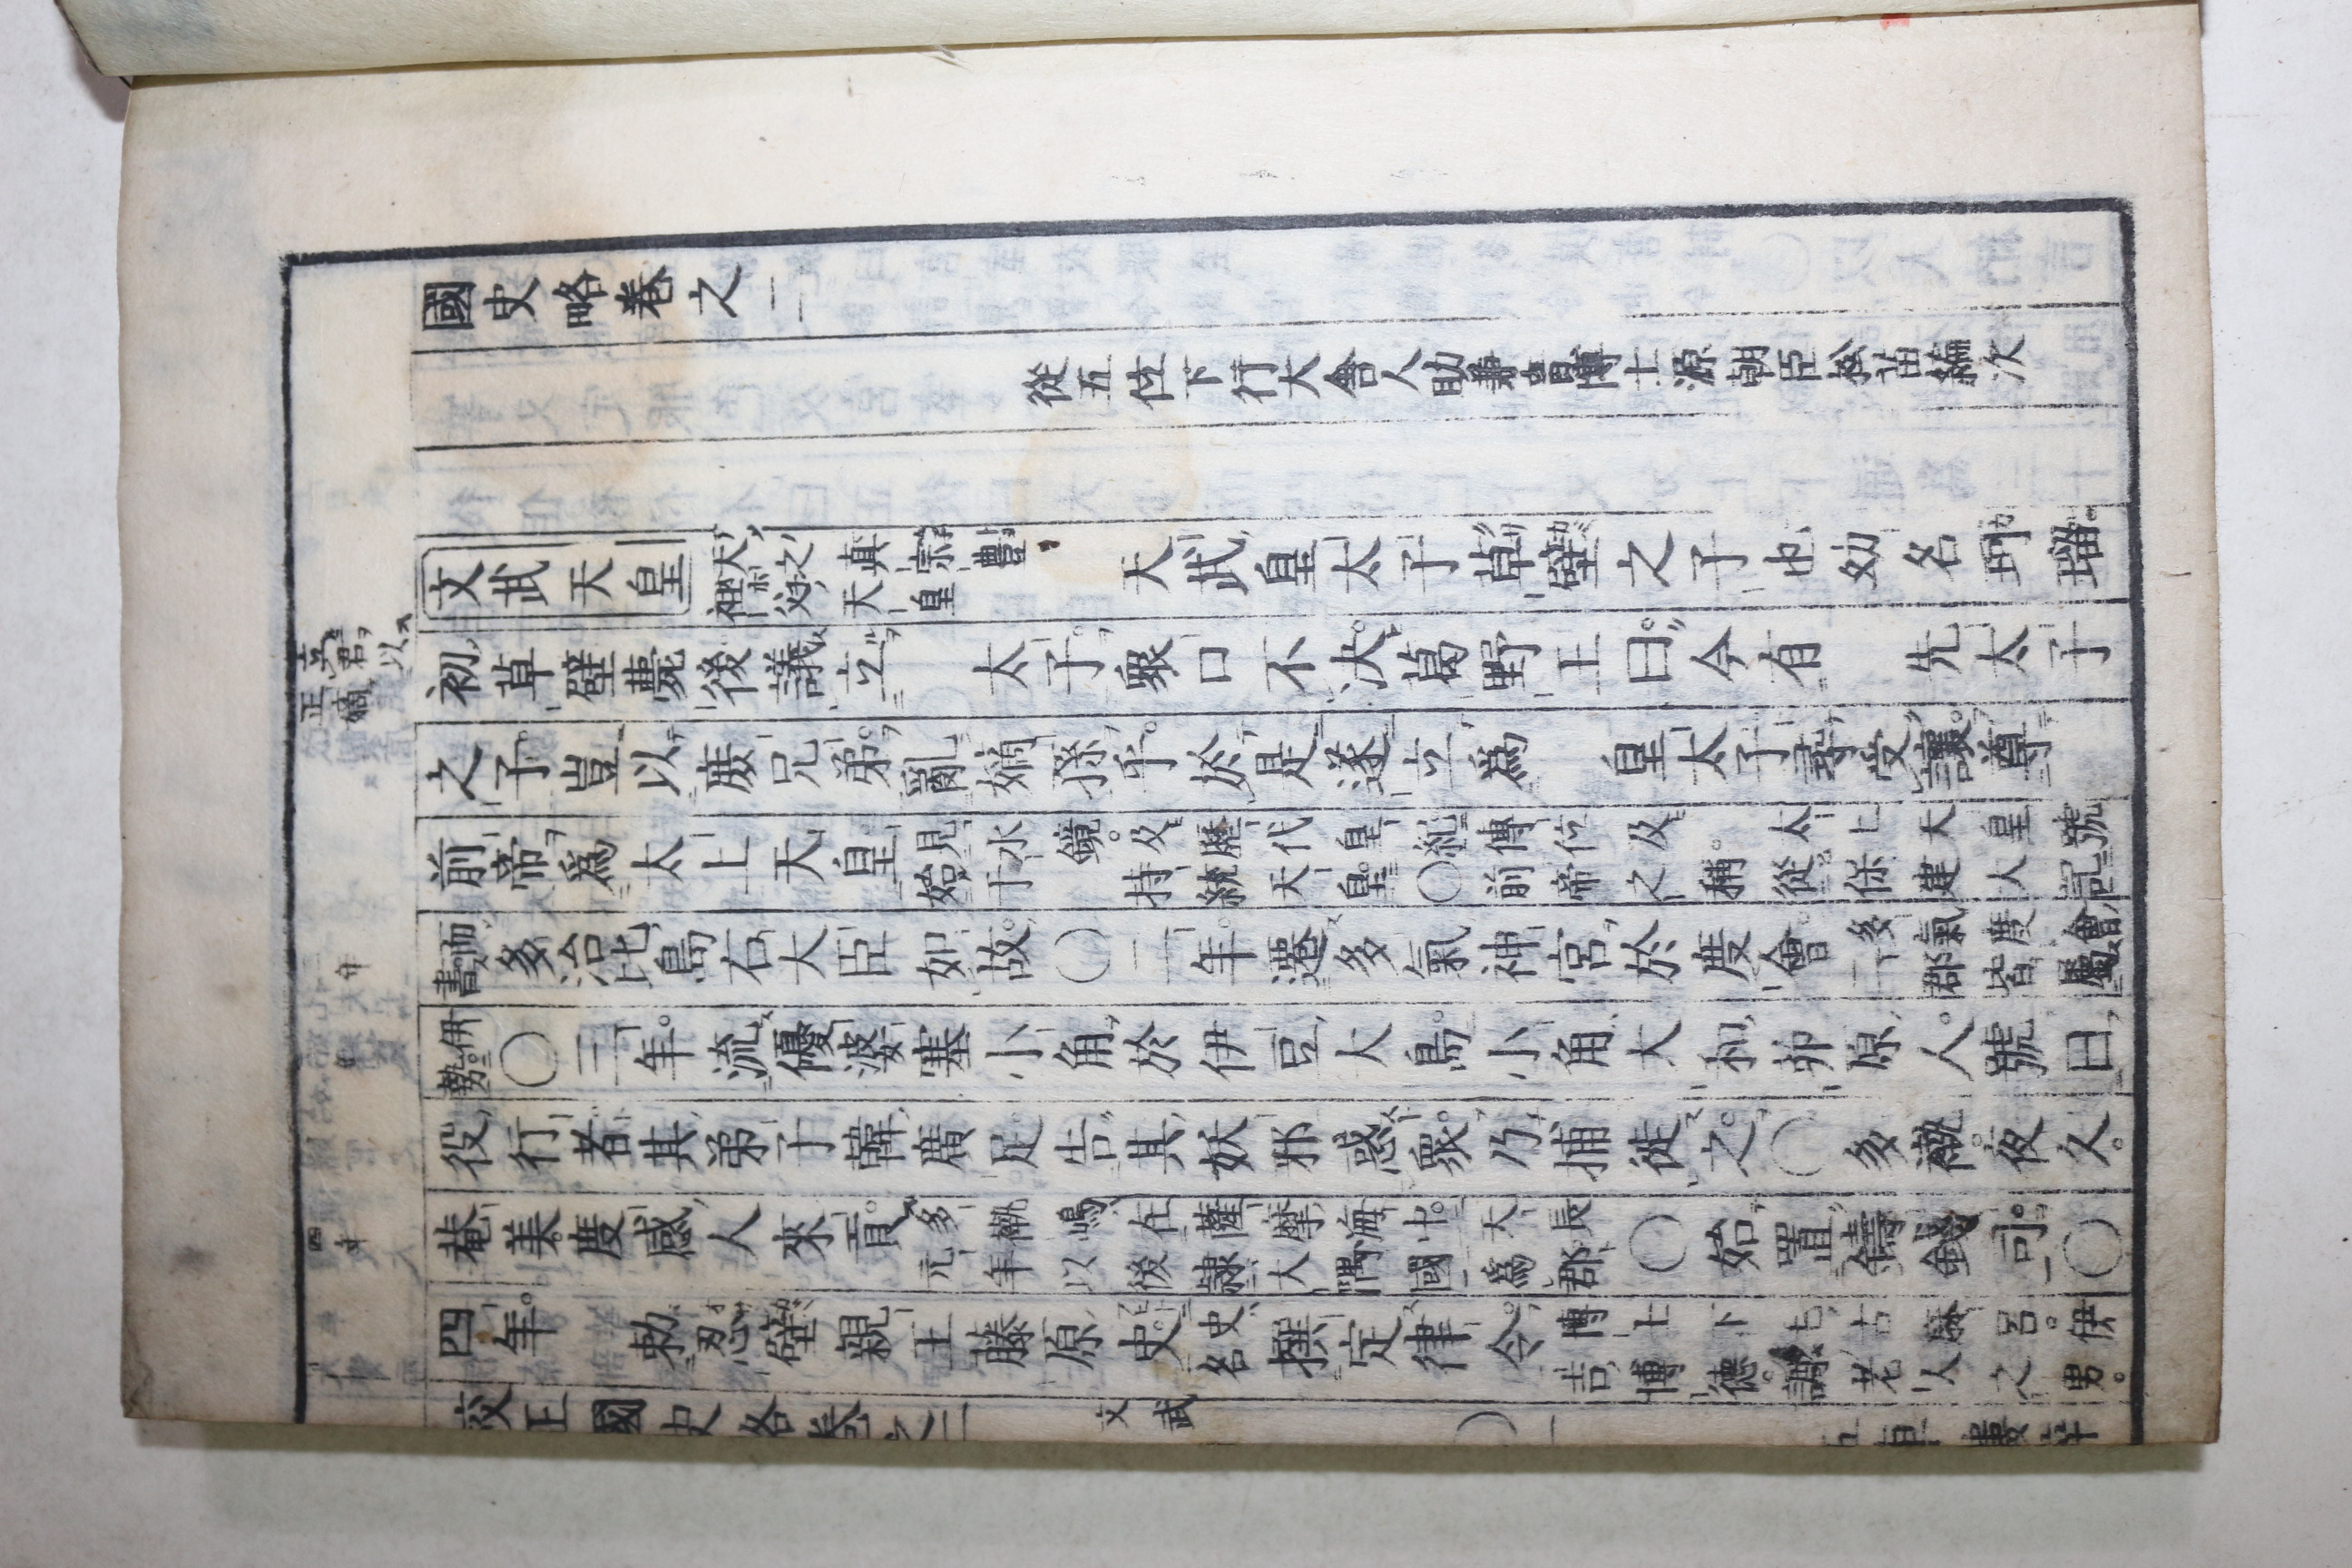 國史略卷之二
從五位下行大舍人助兼音博士源朝臣松苗編次
立君以
正嫡
文武天皇 天之真宗豐祖父天皇 天武皇太子草壁之子也幼名珂瑠
初草壁薨後議立 太子衆口不決葛野王曰今有 先太子
之子豈以庶兄弟亂嫡孫乎於是遂立爲 皇太子尋受讓尊
前帝爲太上天皇 見水鏡及歷代皇紀傳位及太上天皇號始于持統天皇○前帝之稱從保建大記
二年
而書多治比島右大臣如故○二年遷多氣神宮於度會 多氣度會二郡皆屬
三年
伊勢○三年流優婆塞小角於伊豆大島小角大和茆原人號曰
役行者其弟子韓廣足告其妖邪惑衆乃捕徙之○多褹夜久
四年
菴美度感人來貢 多褹嶋在薩摩海中天長元年以後隷大隅國爲郡○始置鑄錢司○
四年 勅忍壁親王藤原史 史名撰定律令 博士下毛古麻呂伊吉博德調老人之男
校正國史略卷之二 文武 ○一 五車樓梓